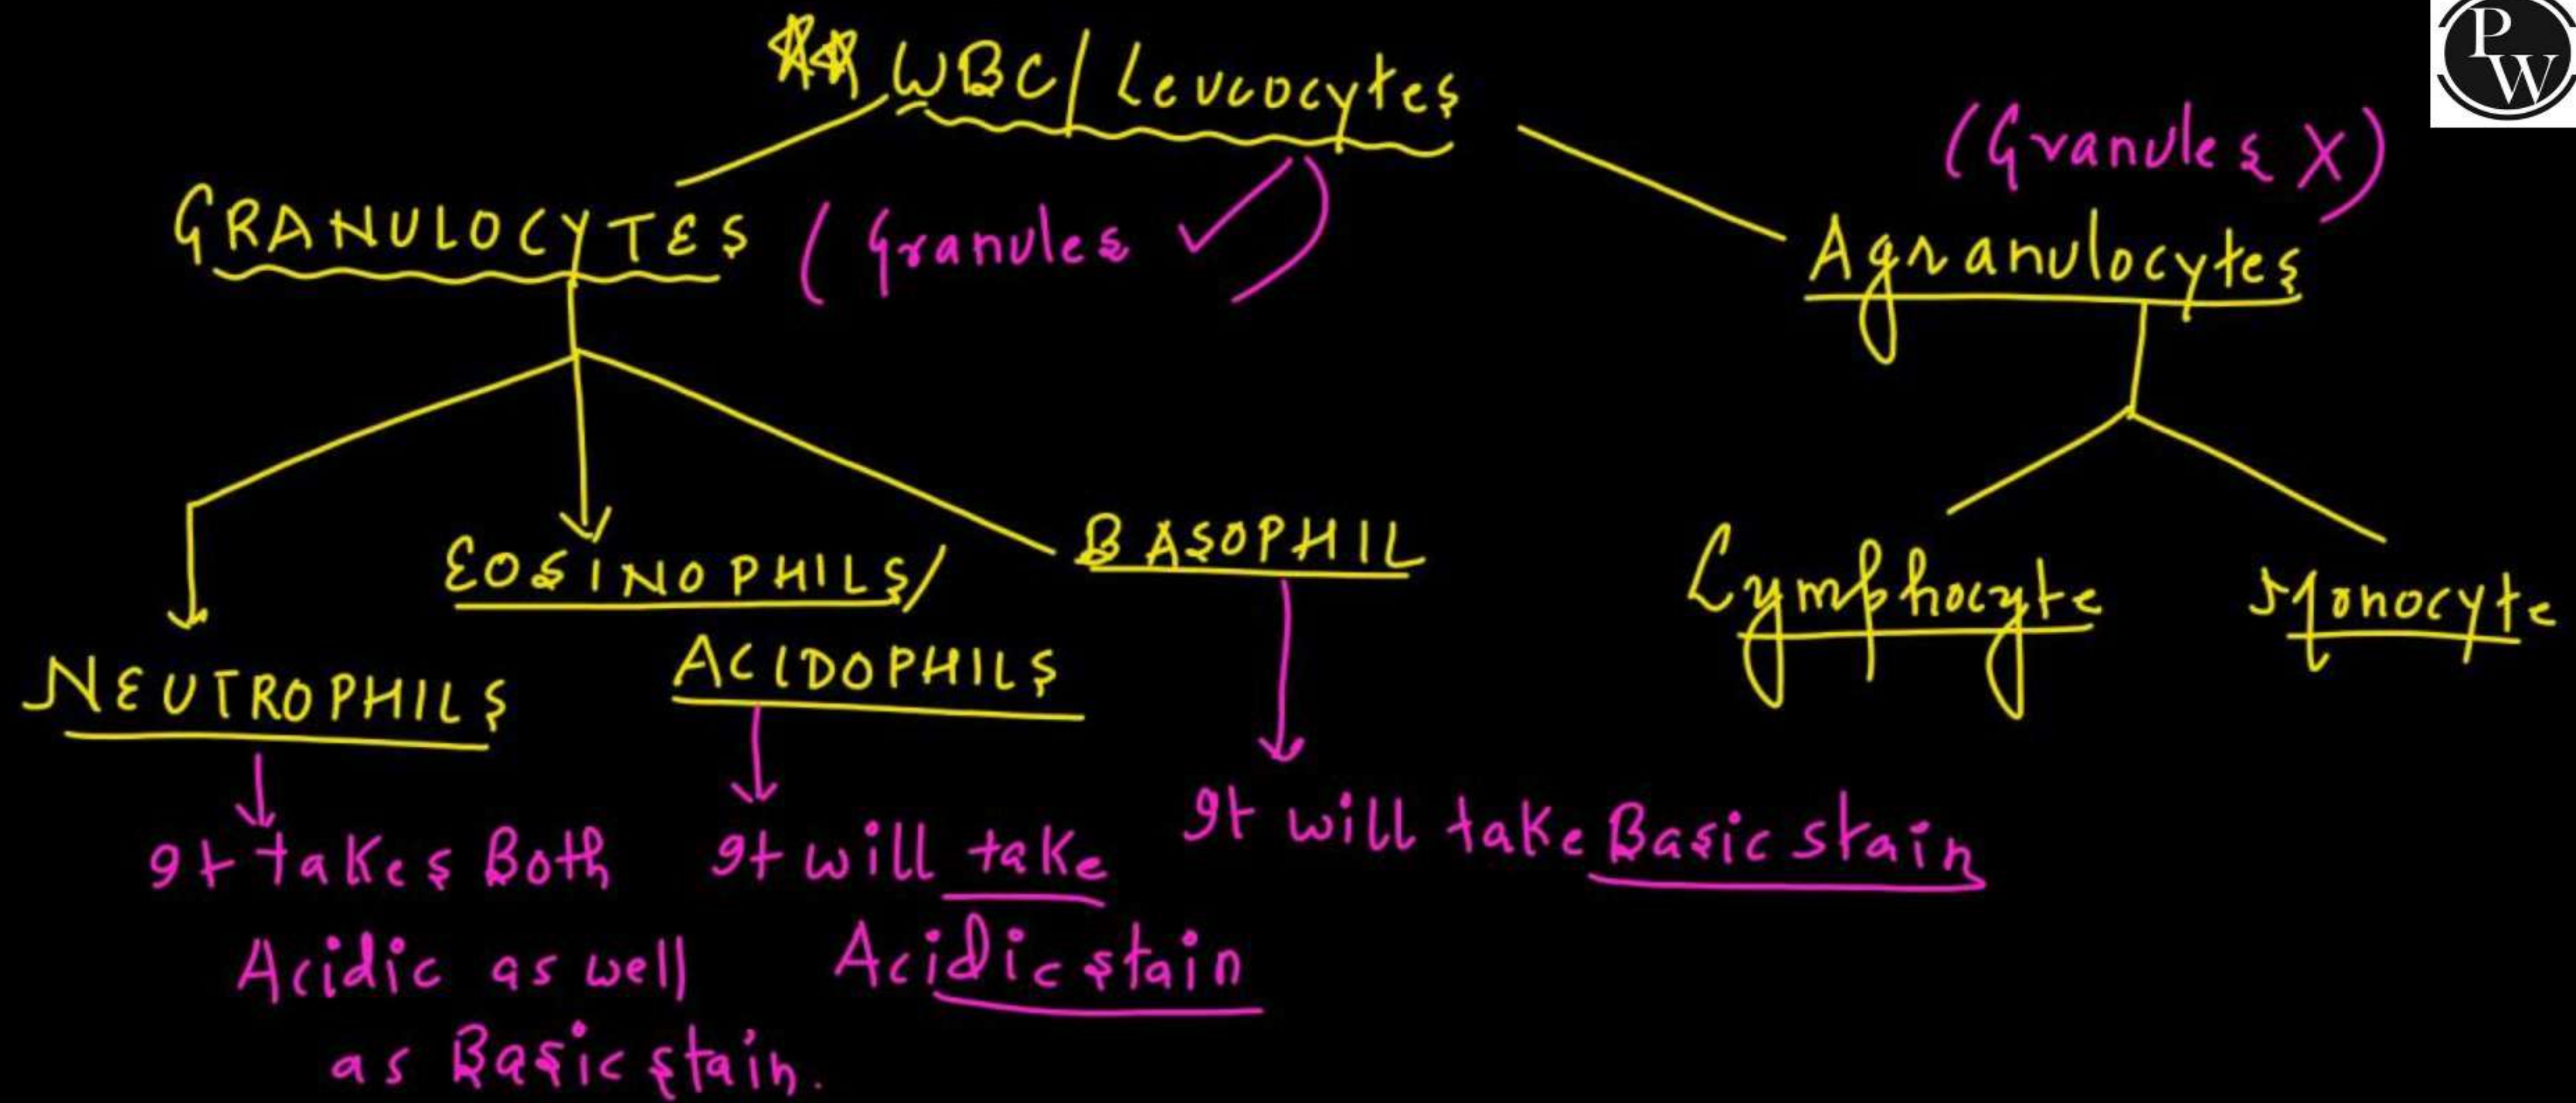 PW
WBC/Leucocytes
(Granules X)
GRANULOCYTES (Granules ✓)
Agranulocytes
EOSINOPHILS/
ACIDOPHILS
BASOPHIL
NEUTROPHILS
Lymphocyte
Monocyte
It takes Both
Acidic as well
as Basic stain.
It will take
Acidic stain
It will take Basic stain